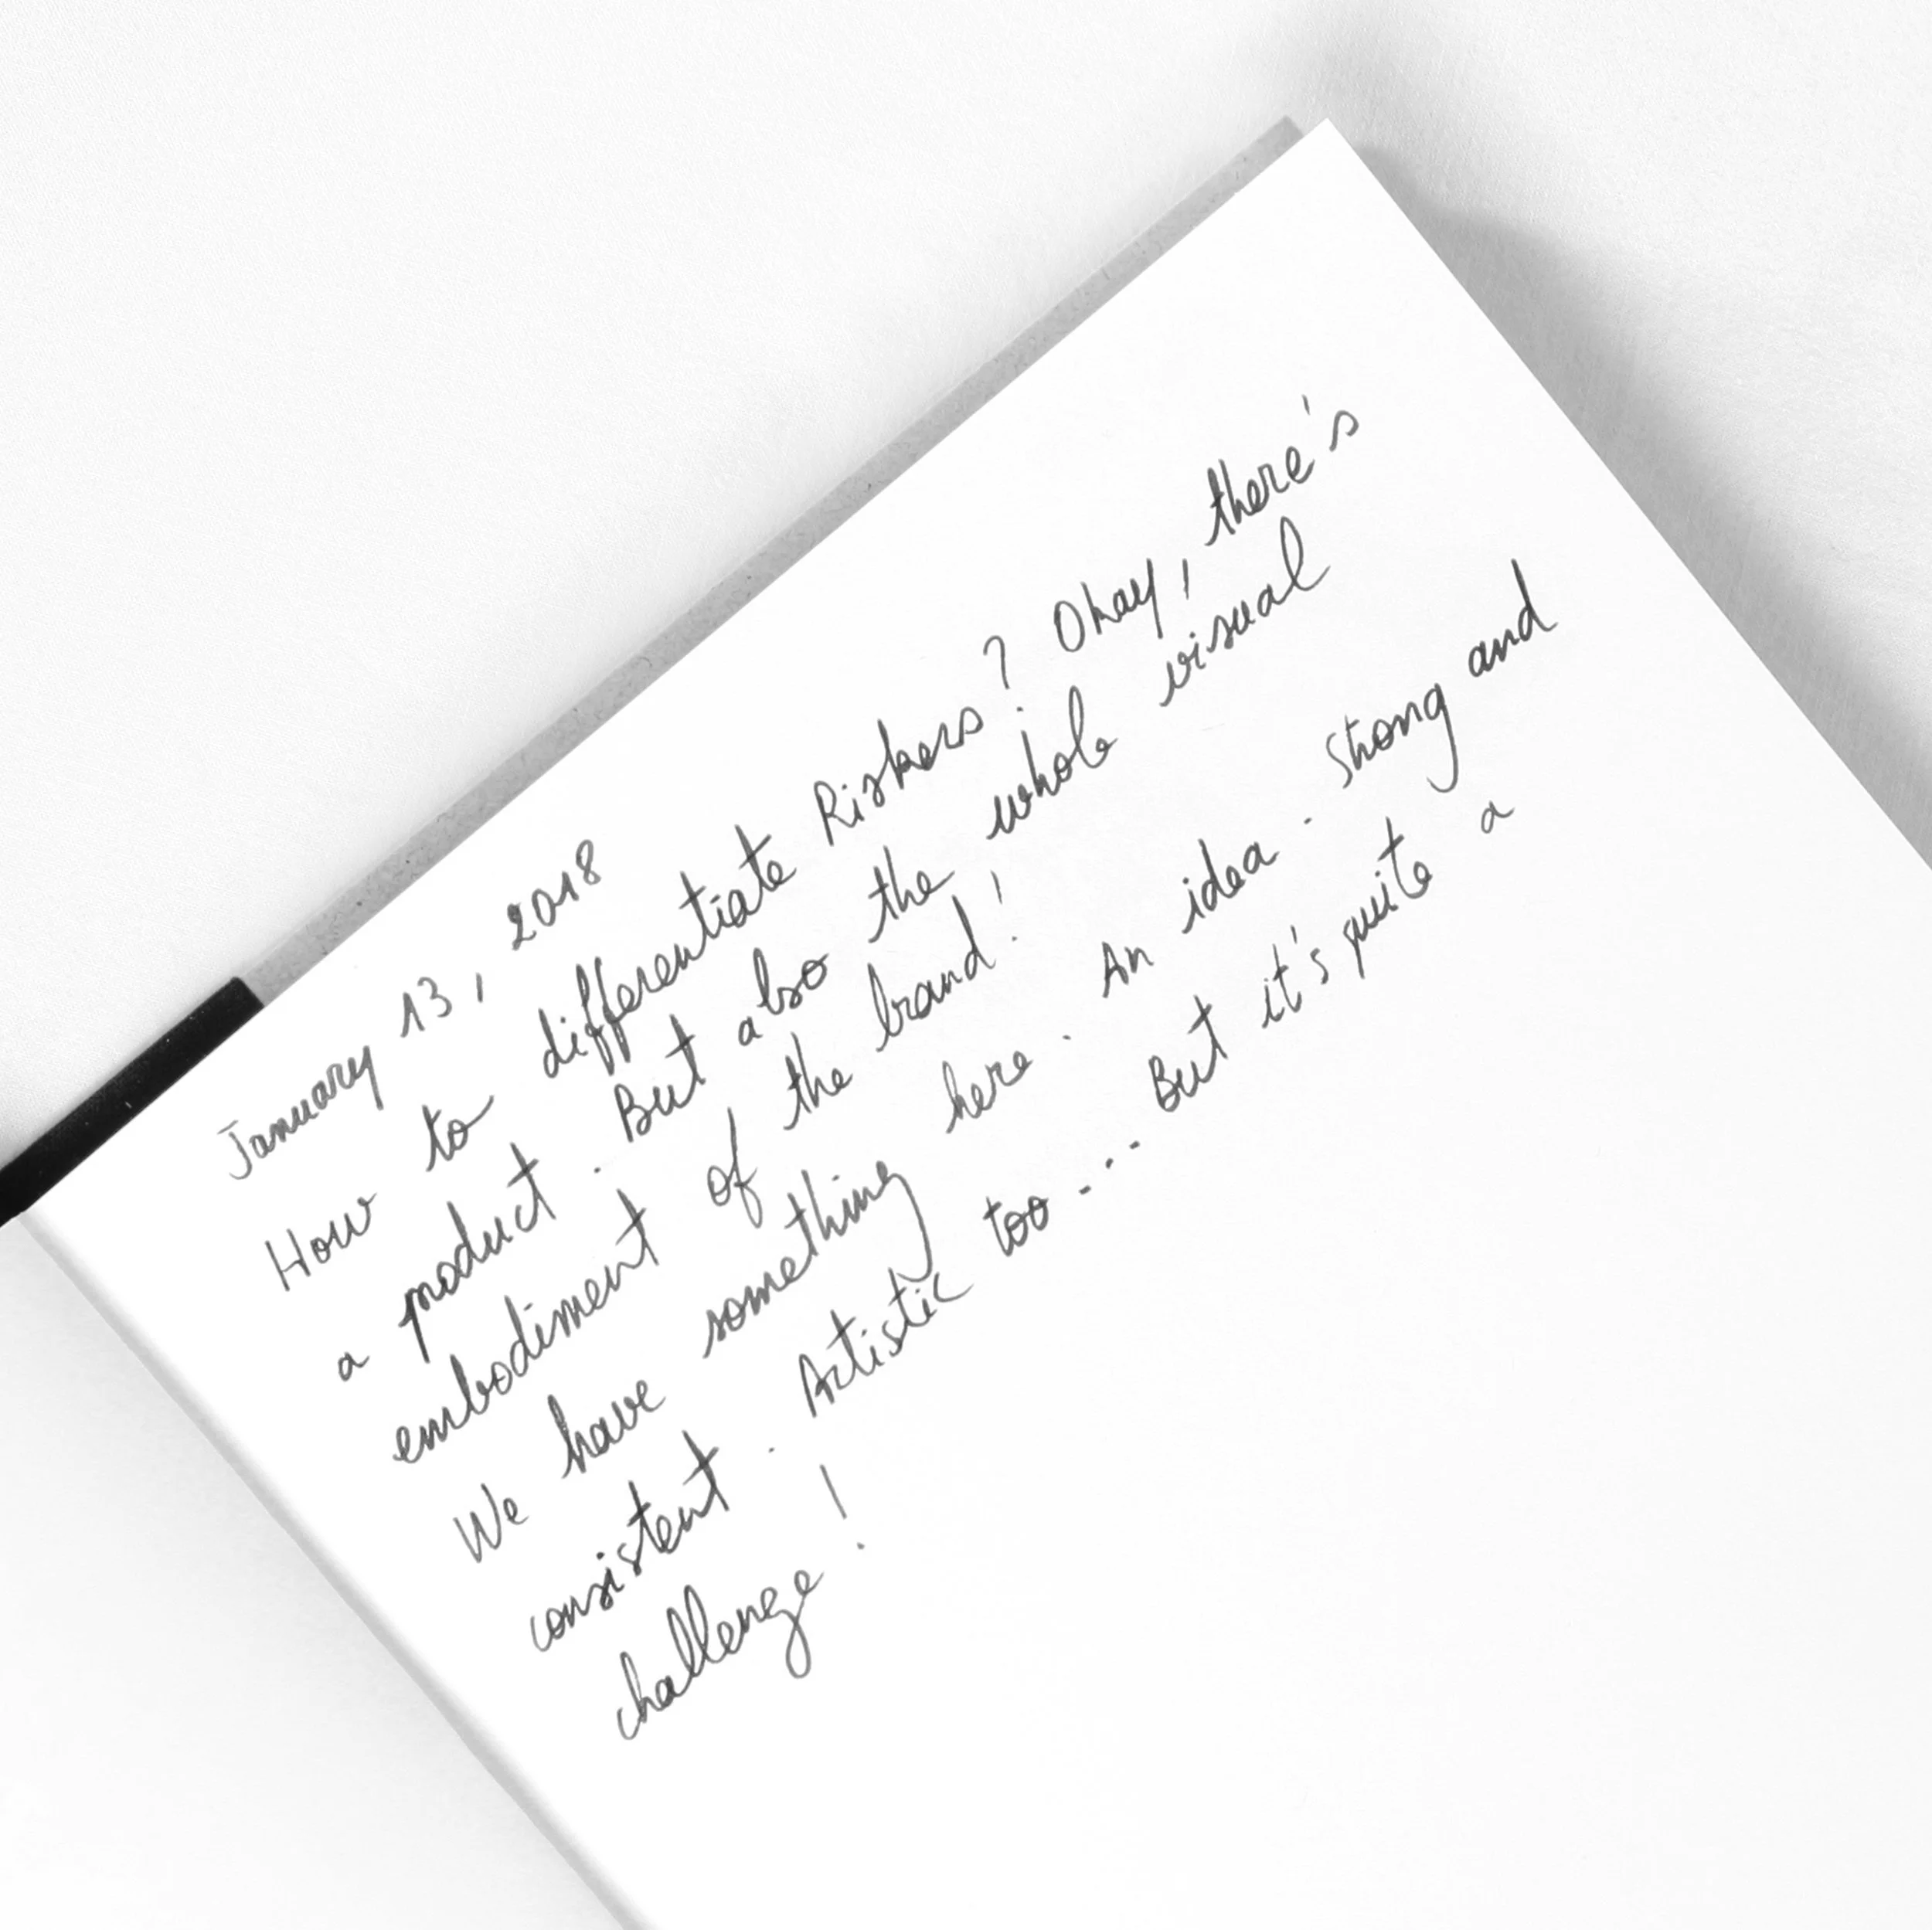 January 13, 2018
How to differentiate Riskers? Okay, there's
a product. But also the whole visual
embodiment of the brand!
We have something here. An idea. Strong and
consistent. Artistic too... But it's quite a
challenge!